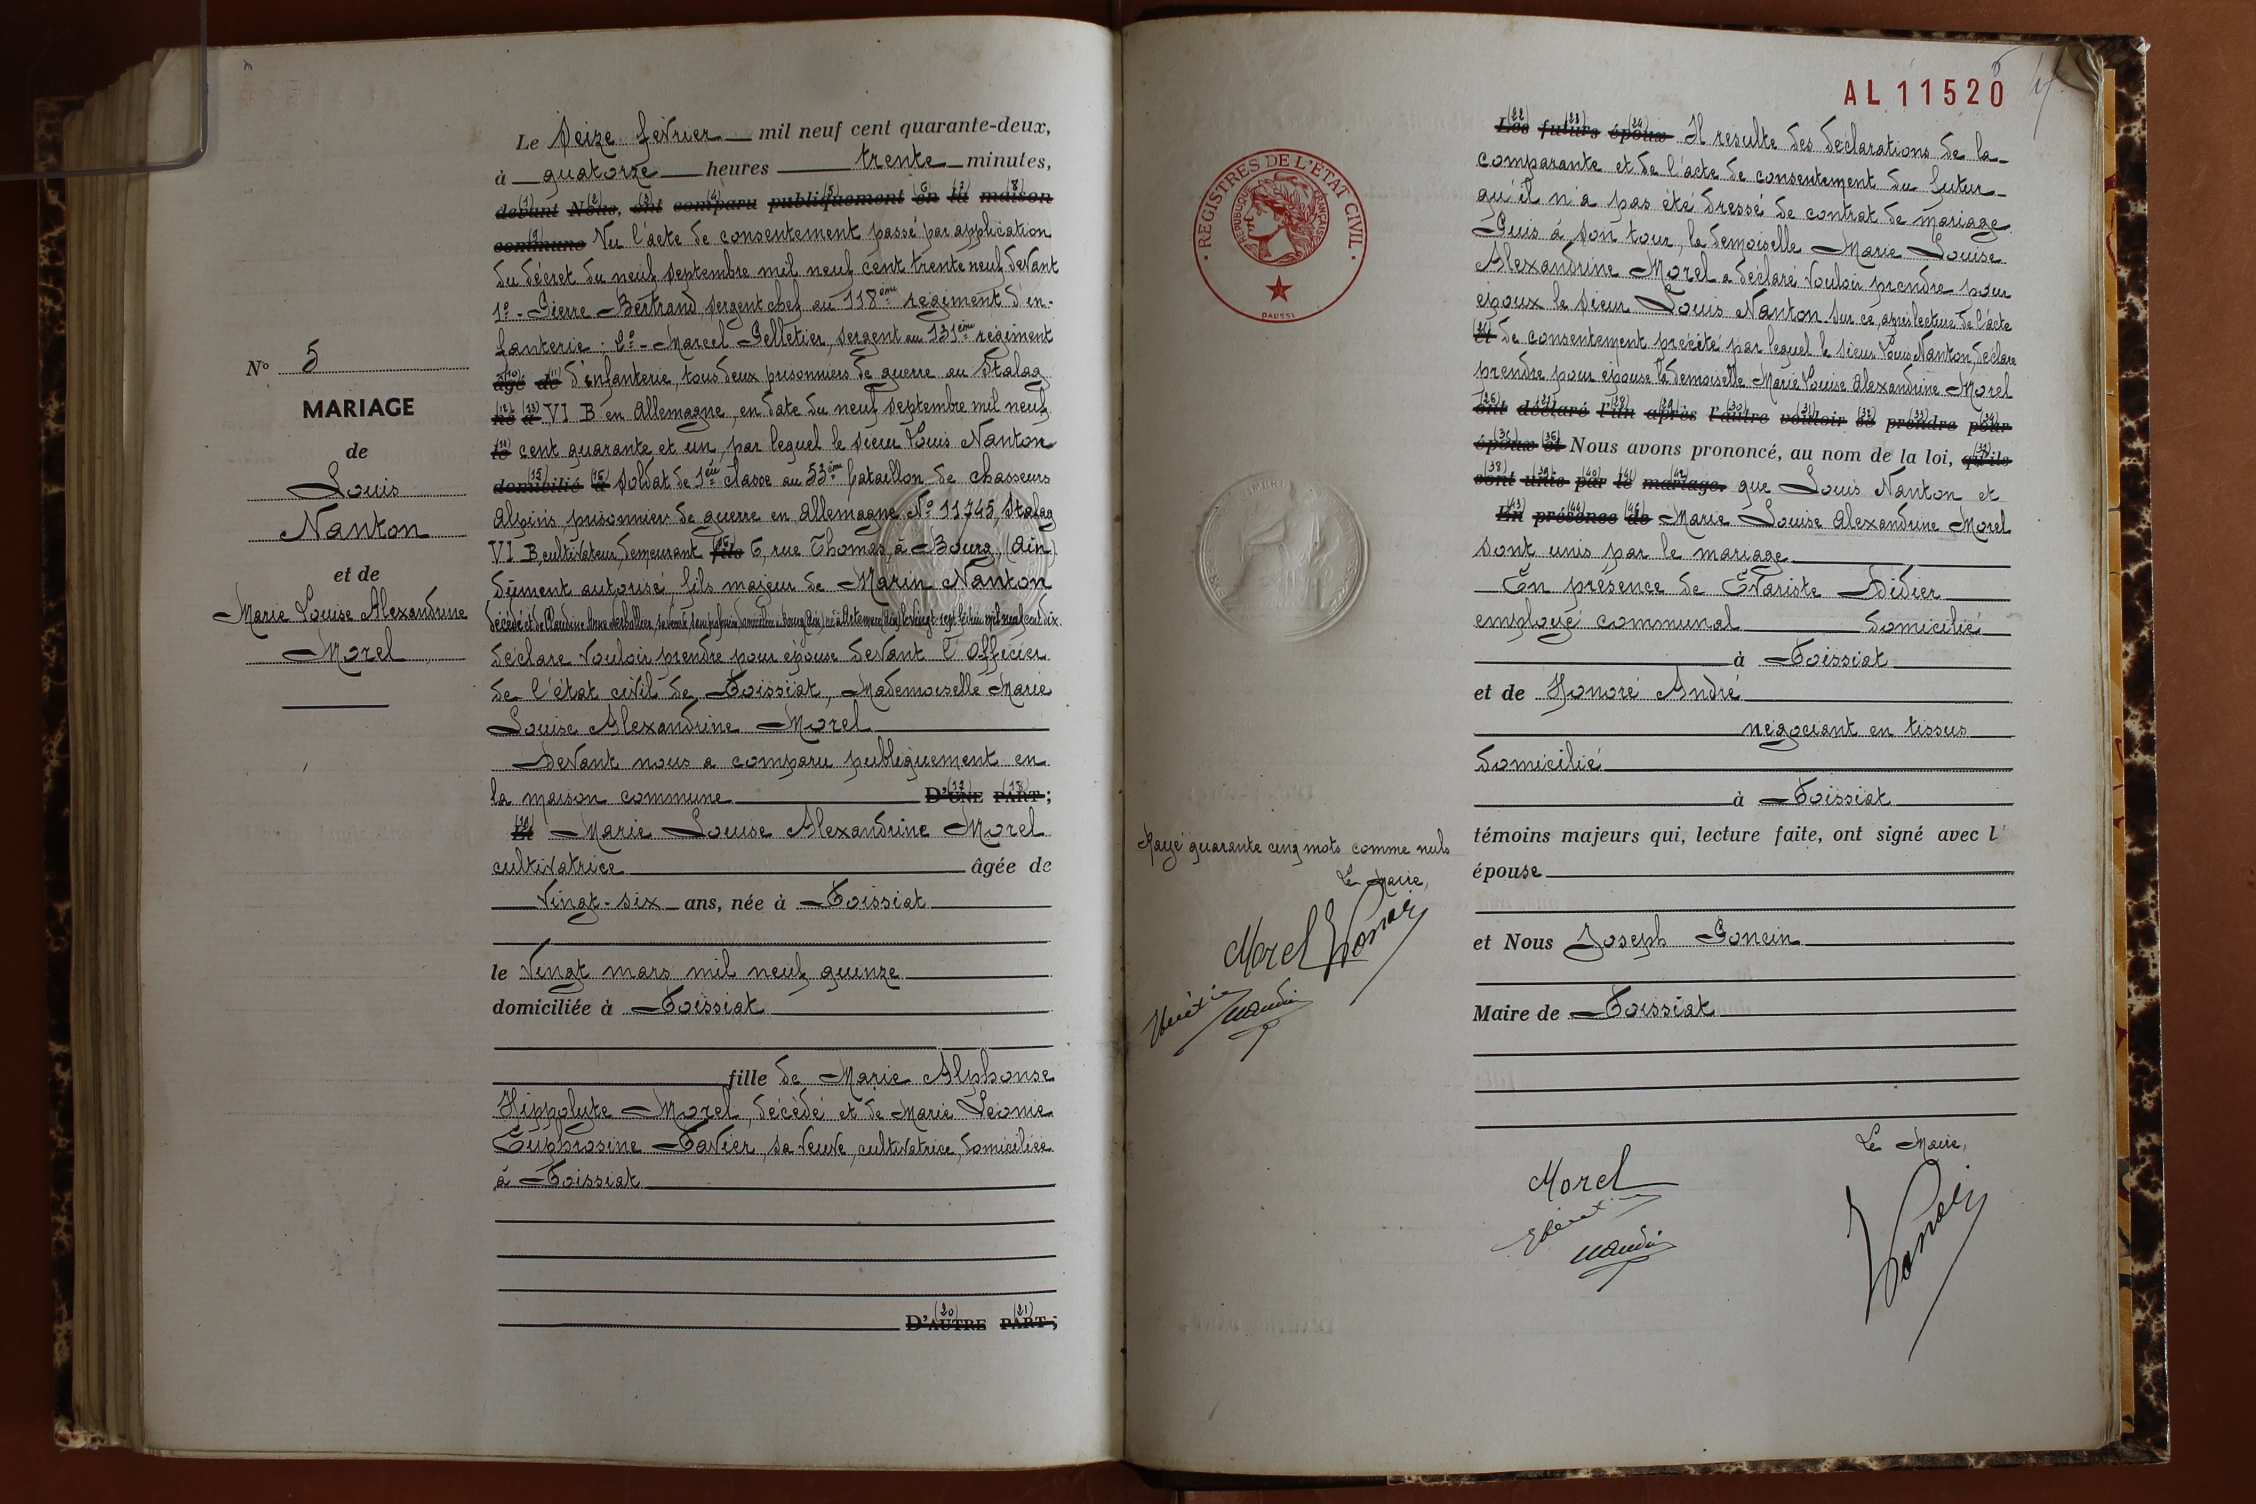 N° 5
MARIAGE
de
Louis
Nanton
et de
Marie Louise Alexandrine
Morel
Le seize février mil neuf cent quarante-deux,
à quatorze heures trente minutes,
devant (1) Nous, (2) ont (3) comparu (4) publiquement (5) en (6) la (7) maison (8)
commune (9) Vu l'acte de consentement passé par application
du décret du neuf septembre mil neuf cent trente neuf devant
1° - Pierre Bertrand, sergent chef au 118ème régiment d'in-
fanterie ; 2° - Marcel Pelletier, sergent au 131ème régiment
âgé (10) de (11) d'infanterie, tous deux prisonniers de guerre au Stalag
né (12) à (13) VI B en Allemagne, en date du neuf septembre mil neuf
le (14) cent quarante et un, par lequel le sieur Louis Nanton
domicilié (15) à (16) soldat de 1ère classe au 53ème bataillon de chasseurs
Alpins, prisonnier de guerre en Allemagne N° 11745, Stalag
VI B, cultivateur, demeurant fils (16) 6, rue Thomas, à Bourg, (Ain)
dûment autorisé, fils majeur de Marin Nanton
décédé et de Claudine Anne sa veuve, sans profession, domiciliée à Bourg (Ain) né à (Ain) le vingt sept mil neuf cent dix
déclare vouloir prendre pour épouse devant l'Officier
de l'état civil de Toissiat, Mademoiselle Marie
Louise Alexandrine Morel
Devant nous a comparu publiquement en
la maison commune D'UNE (17) PART (18) ;
Et (19) Marie Louise Alexandrine Morel
cultivatrice âgée de
vingt-six ans, née à Toissiat
le vingt mars mil neuf quinze
domiciliée à Toissiat
fille de Marie Alphonse
Hippolyte Morel, décédé et de Marie Léonie
Euphrosine Tavier, sa veuve, cultivatrice, domiciliée
à Toissiat
D'AUTRE (20) PART (21) ;
AL 11520
REGISTRES DE L'ÉTAT CIVIL
RÉPUBLIQUE FRANÇAISE
DAUSSI
Les (22) futurs (23) époux (24) Il resulte des déclarations de la
comparante et de l'acte de consentement du futur
qu'il n'a pas été dressé de contrat de mariage
Puis à son tour, la demoiselle Marie Louise
Alexandrine Morel a déclaré vouloir prendre pour
epoux le sieur Louis Nanton. Sur ce, après lecture de l'acte
et (25) de consentement precité par lequel le sieur Louis Nanton, déclare
prendre pour epouse la demoiselle Marie Louise Alexandrine Morel
ont (26) déclaré (27) l'un (28) après (29) l'autre (30) vouloir (31) se (32) prendre (33) pour (34)
époux (35) et (36) Nous avons prononcé, au nom de la loi, qu'ils (37)
sont (38) unis (39) par (40) le (41) mariage. (42) que Louis Nanton et
En (43) présence (44) de (45) Marie Louise Alexandrine Morel
sont unis par le mariage
En présence de Evariste Didier
employé communal domicilié
à Toissiat
et de Honoré André
négociant en tissus
domicilié
à Toissiat
témoins majeurs qui, lecture faite, ont signé avec l'
épouse
et Nous Joseph Poncin
Maire de Toissiat
Rayé quarante cinq mots comme nuls
Le Maire,
Morel
Le Maire,
Morel